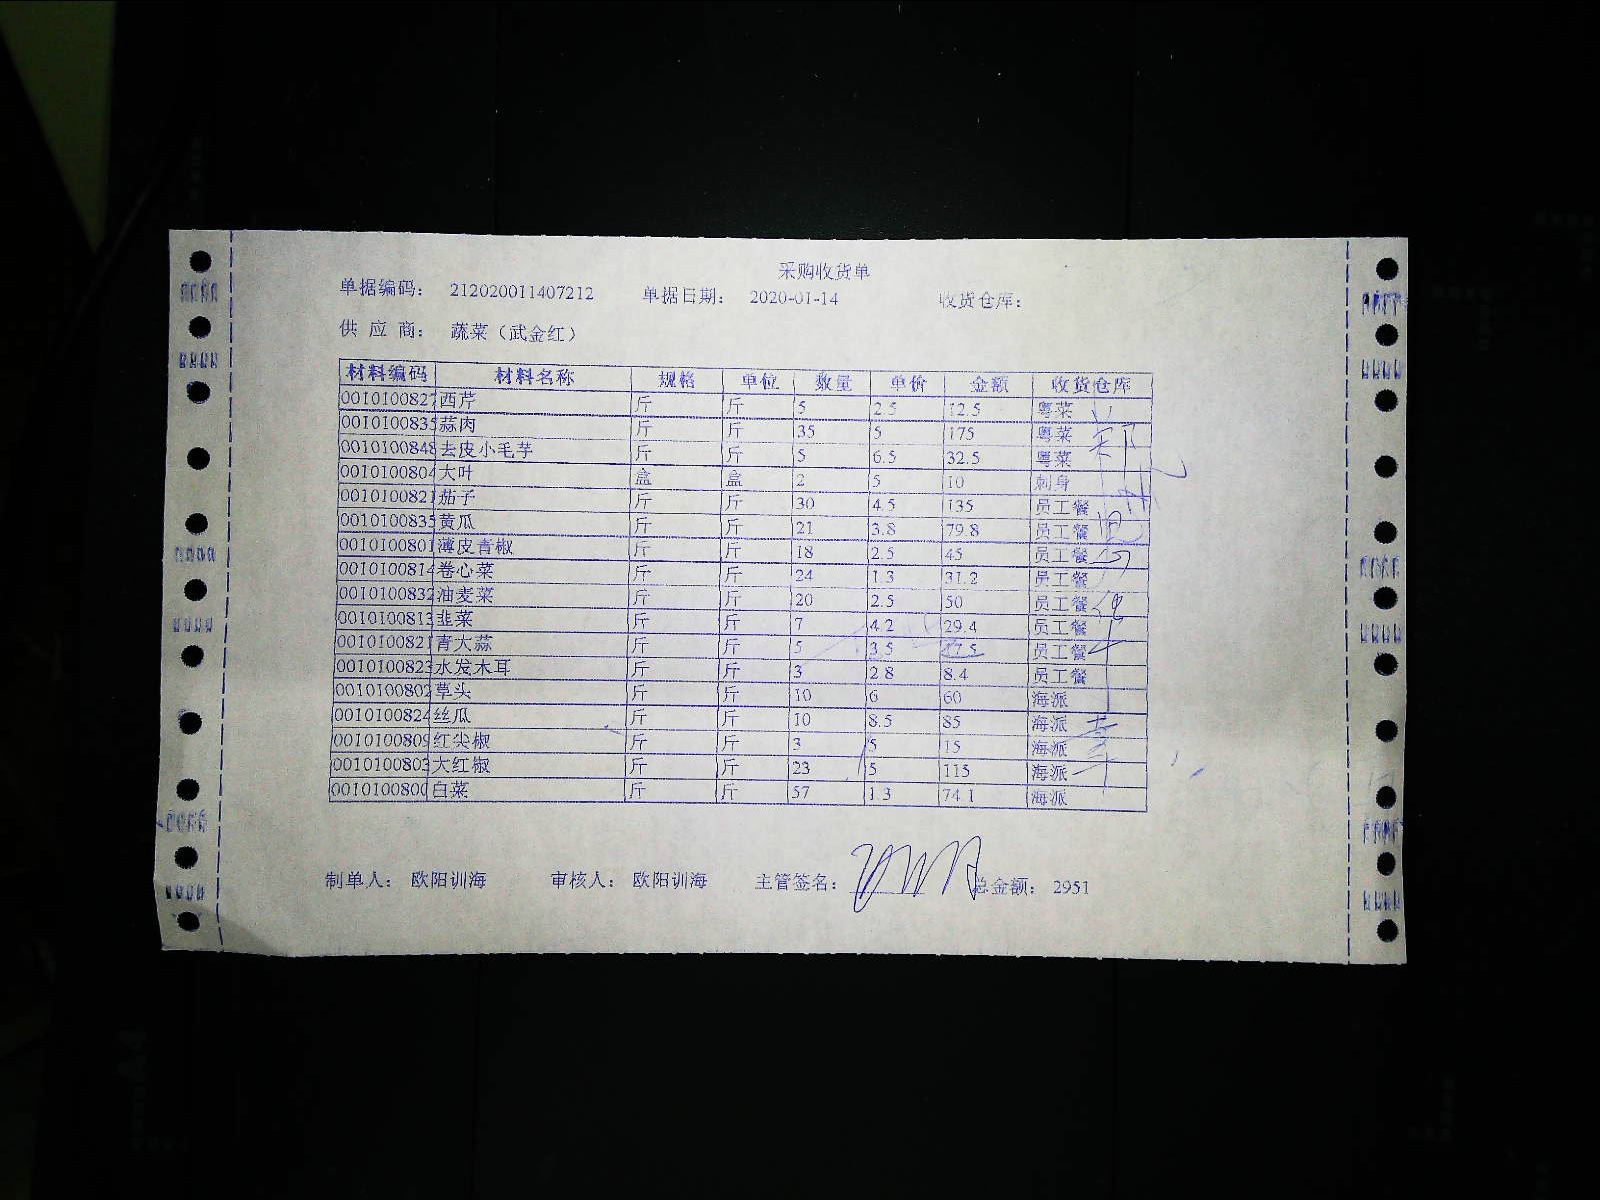 采购收货单
单据编码： 212020011407212 单据日期： 2020-01-14 收货仓库：
供 应 商： 蔬菜（武金红）
材料编码 材料名称 规格 单位 数量 单价 金额 收货仓库
0010100827 西芹 斤 斤 5 2.5 12.5 粤菜
0010100835 蒜肉 斤 斤 35 5 175 粤菜
0010100848 去皮小毛芋 斤 斤 5 6.5 32.5 粤菜
0010100804 大叶 盒 盒 2 5 10 刺身
0010100821 茄子 斤 斤 30 4.5 135 员工餐
0010100835 黄瓜 斤 斤 21 3.8 79.8 员工餐
0010100801 薄皮青椒 斤 斤 18 2.5 45 员工餐
0010100814 卷心菜 斤 斤 24 1.3 31.2 员工餐
0010100832 油麦菜 斤 斤 20 2.5 50 员工餐
0010100813 韭菜 斤 斤 7 4.2 29.4 员工餐
0010100821 青大蒜 斤 斤 5 3.5 17.5 员工餐
0010100823 水发木耳 斤 斤 3 2.8 8.4 员工餐
0010100802 草头 斤 斤 10 6 60 海派
0010100824 丝瓜 斤 斤 10 8.5 85 海派
0010100809 红尖椒 斤 斤 3 5 15 海派
0010100803 大红椒 斤 斤 23 5 115 海派
0010100800 白菜 斤 斤 57 1.3 74.1 海派
制单人： 欧阳训海 审核人： 欧阳训海 主管签名： 总金额： 2951